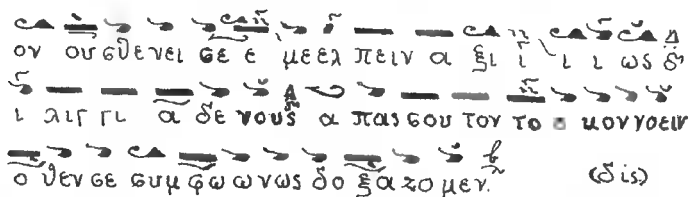 ον ου σθενει σε ε με ελ πειν α ξι ι ι ι ως δ'
ι λιγ γι α δε νους α πας σου τον το κον νοειν
ο θεν σε συμ φω ω νως δο ξα ζο μεν. (δις)